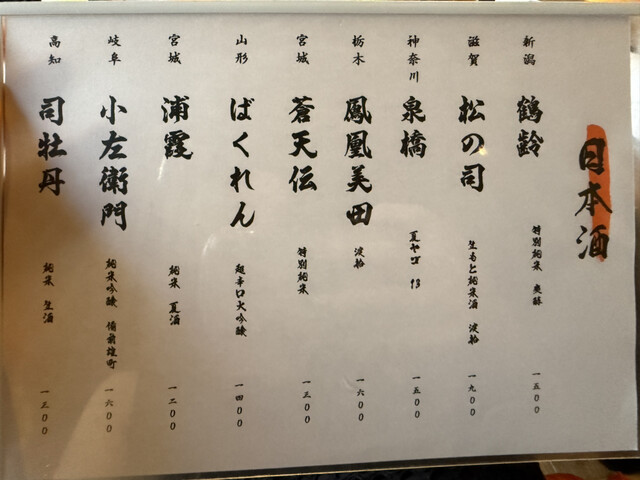 日本酒
新潟 鶴齢 特別純米 爽醇 一五00
滋賀 松の司 生もと純米酒 渡船 一九00
神奈川 泉橋 夏ヤゴ 13 一五00
栃木 鳳凰美田 渡船 一六00
宮城 蒼天伝 特別純米 一三00
山形 ばくれん 超辛口大吟醸 一四00
宮城 浦霞 純米 夏酒 一二00
岐阜 小左衛門 純米吟醸 備前雄町 一六00
高知 司牡丹 純米 生酒 一三00